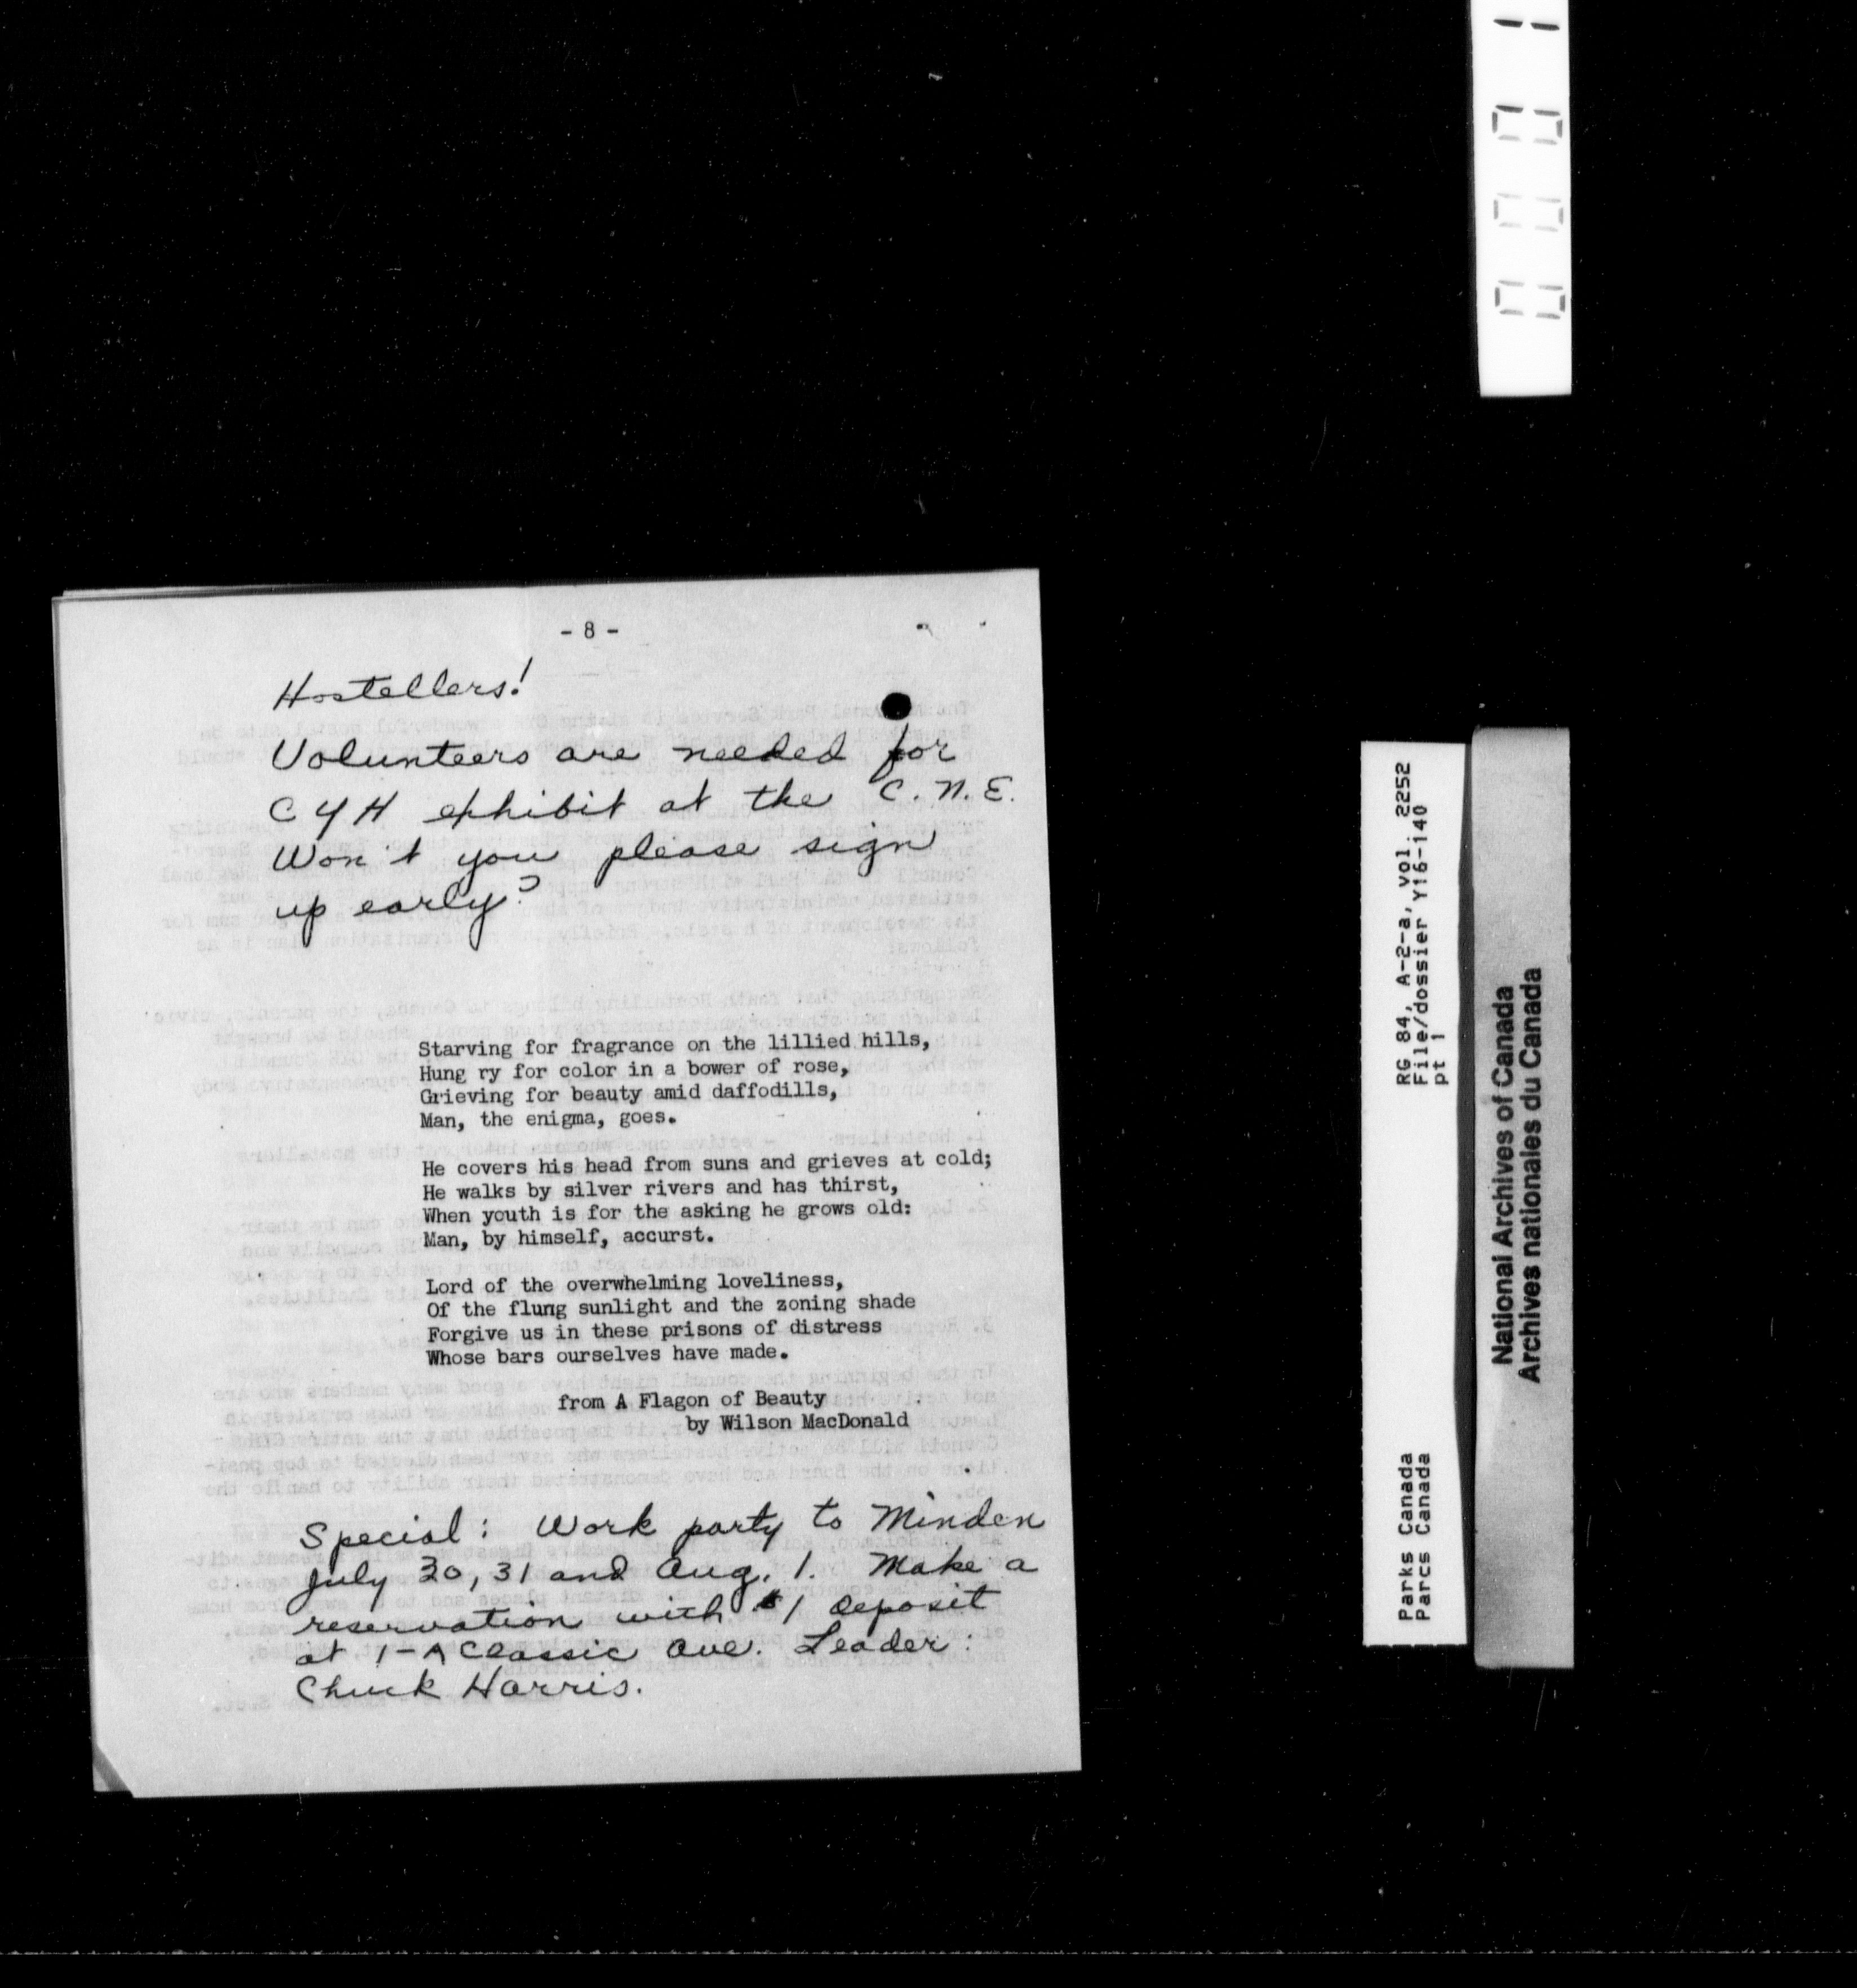 - 8 -
Hostellers!
Volunteers are needed for
CYH exhibit at the C.N.E.
Won't you please sign
up early?
Starving for fragrance on the lillied hills,
Hung ry for color in a bower of rose,
Grieving for beauty amid daffodills,
Man, the enigma, goes.
He covers his head from suns and grieves at cold;
He walks by silver rivers and has thirst,
When youth is for the asking he grows old:
Man, by himself, accurst.
Lord of the overwhelming loveliness,
Of the flung sunlight and the zoning shade
Forgive us in these prisons of distress
Whose bars ourselves have made.
from A Flagon of Beauty
by Wilson MacDonald
Special: Work party to Minden
July 30, 31 and Aug. 1. Make a
reservation with $1 deposit
at 1-A Classic Ave. Leader:
Chuck Harris.
RG 84, A-2-a, vol. 2252
File/dossier Y16-140
pt 1
Parks Canada
Parcs Canada
National Archives of Canada
Archives nationales du Canada